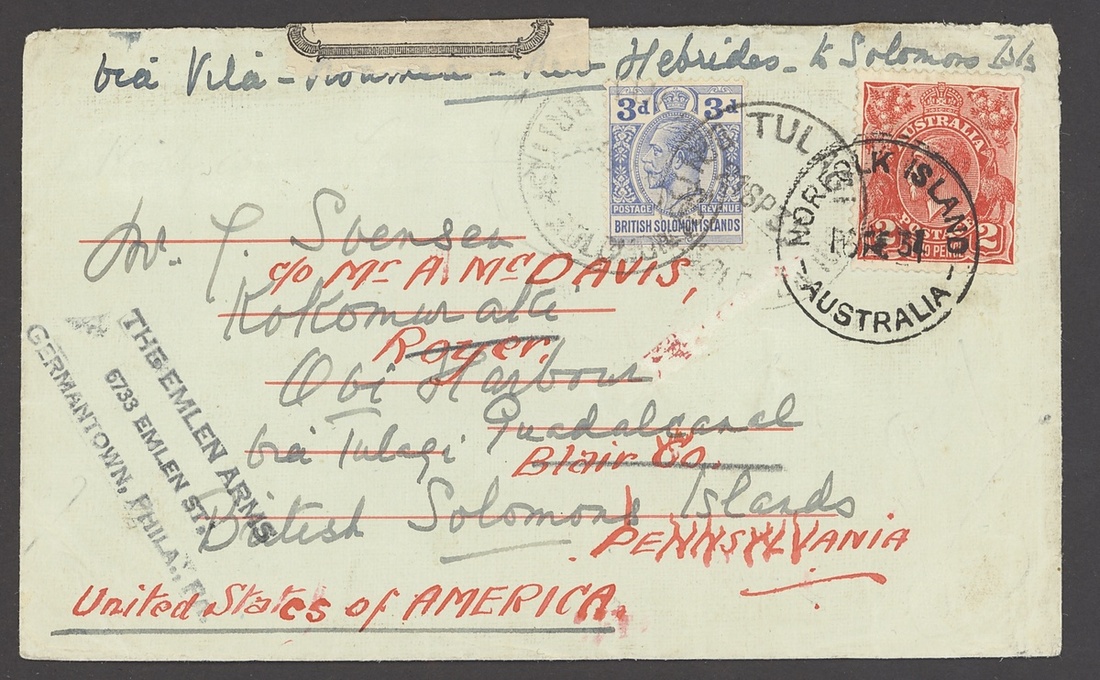 via Vila - Noumea - New Hebrides - to Solomons Isls
3d 3d
POSTAGE REVENUE
BRITISH SOLOMON ISLANDS
AUSTRALIA
2 2
POSTAGE
TWO PENCE
TULAGI
NORFOLK ISLAND
DE 31
- AUSTRALIA -
Mr. T. Svensen
c/o Mr A. McDAVIS,
Kokomuraki
Royer.
Obi Harbour,
Guadalcanal
via Tulagi
Blair Co.
British Solomon Islands
PENNSYLVANIA
United States of AMERICA.
THE EMLEN ARMS
6733 EMLEN ST.,
GERMANTOWN, PHILA., PA.